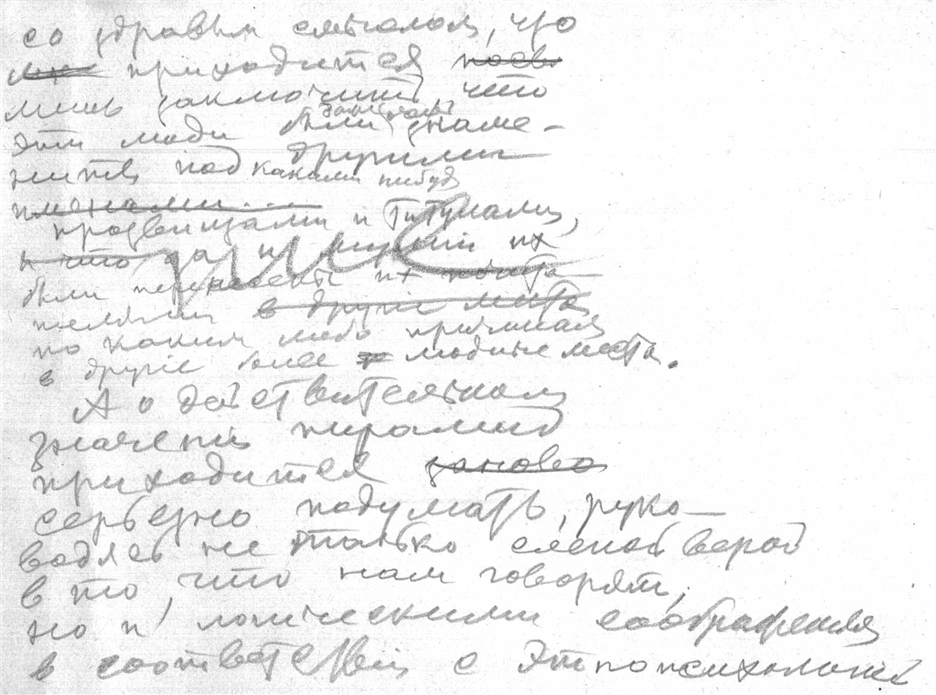 со здравым смыслом, что
приходится
лишь заключить что
эти люди были знаме-
ниты под другими
какими нибудь
именами...
прозвищами и титулами,
и что да и мумии их
были перенесены их почита-
телями в другие места
по каким либо причинам
в другие более людные места.
А о действительном
значении пирамид
приходится заново
серьезно подумать, руко-
водясь не только слепой верой
в то, что нам говорят,
но и логическими соображения
в соответствии с этнопсихологией